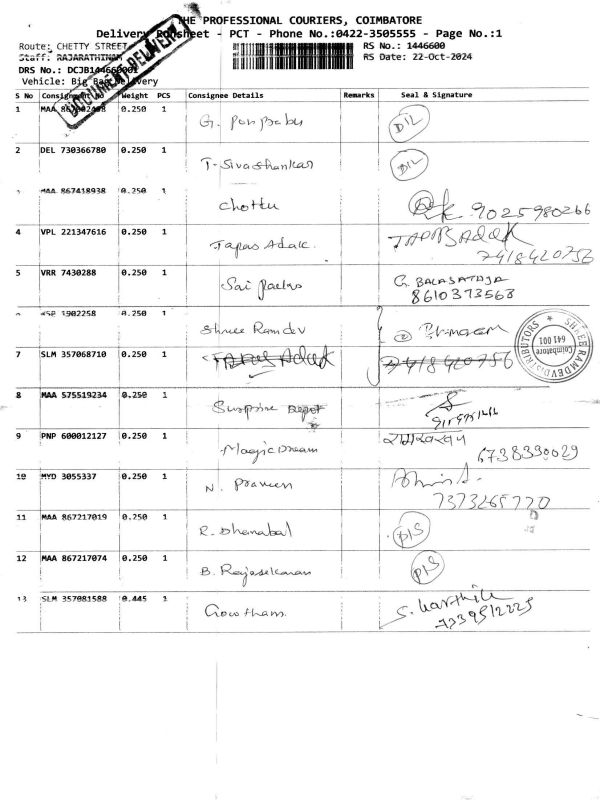 THE PROFESSIONAL COURIERS, COIMBATORE
Delivery Runsheet - PCT - Phone No.:0422-3505555 - Page No.:1
Route: CHETTY STREET RS No.: 1446600
Staff: RAJARATHINAM RS Date: 22-Oct-2024
DRS No.: DCJB144660001
Vehicle: Big Bag Delivery
DOCUMENT DELIVERY
S No Consignment No Weight PCS Consignee Details Remarks Seal & Signature
1 MAA 0.250 1 G. Pon Babu D/L
2 DEL 730366780 0.250 1 T-Sivashankar D/L
MAA 867418938 0.250 1 Chottu 9025980266
4 VPL 221347616 0.250 1 Tapas Adak. TAPAS Adak
7418420756
5 VRR 7430288 0.250 1 Sai G. BALASATHJA
8610373568
1902258 0.250 1 Shree Ramdev
SHREE RAMDEV DISTRIBUTORS
Coimbatore
641 001
7 SLM 357068710 0.250 1 Tapas Adak 7418420756
8 MAA 575519234 0.250 1 Surprise Depot
9 PNP 600012127 0.250 1 Magic Dream 6738390029
10 MYD 3055337 0.250 1 N. Praveen
7373265770
11 MAA 867217019 0.250 1 R. Dhanabal D/S
12 MAA 867217074 0.250 1 B. Rajasekaran D/S
13 SLM 357081588 0.445 1 Gowtham. S. Karthik
7339512225